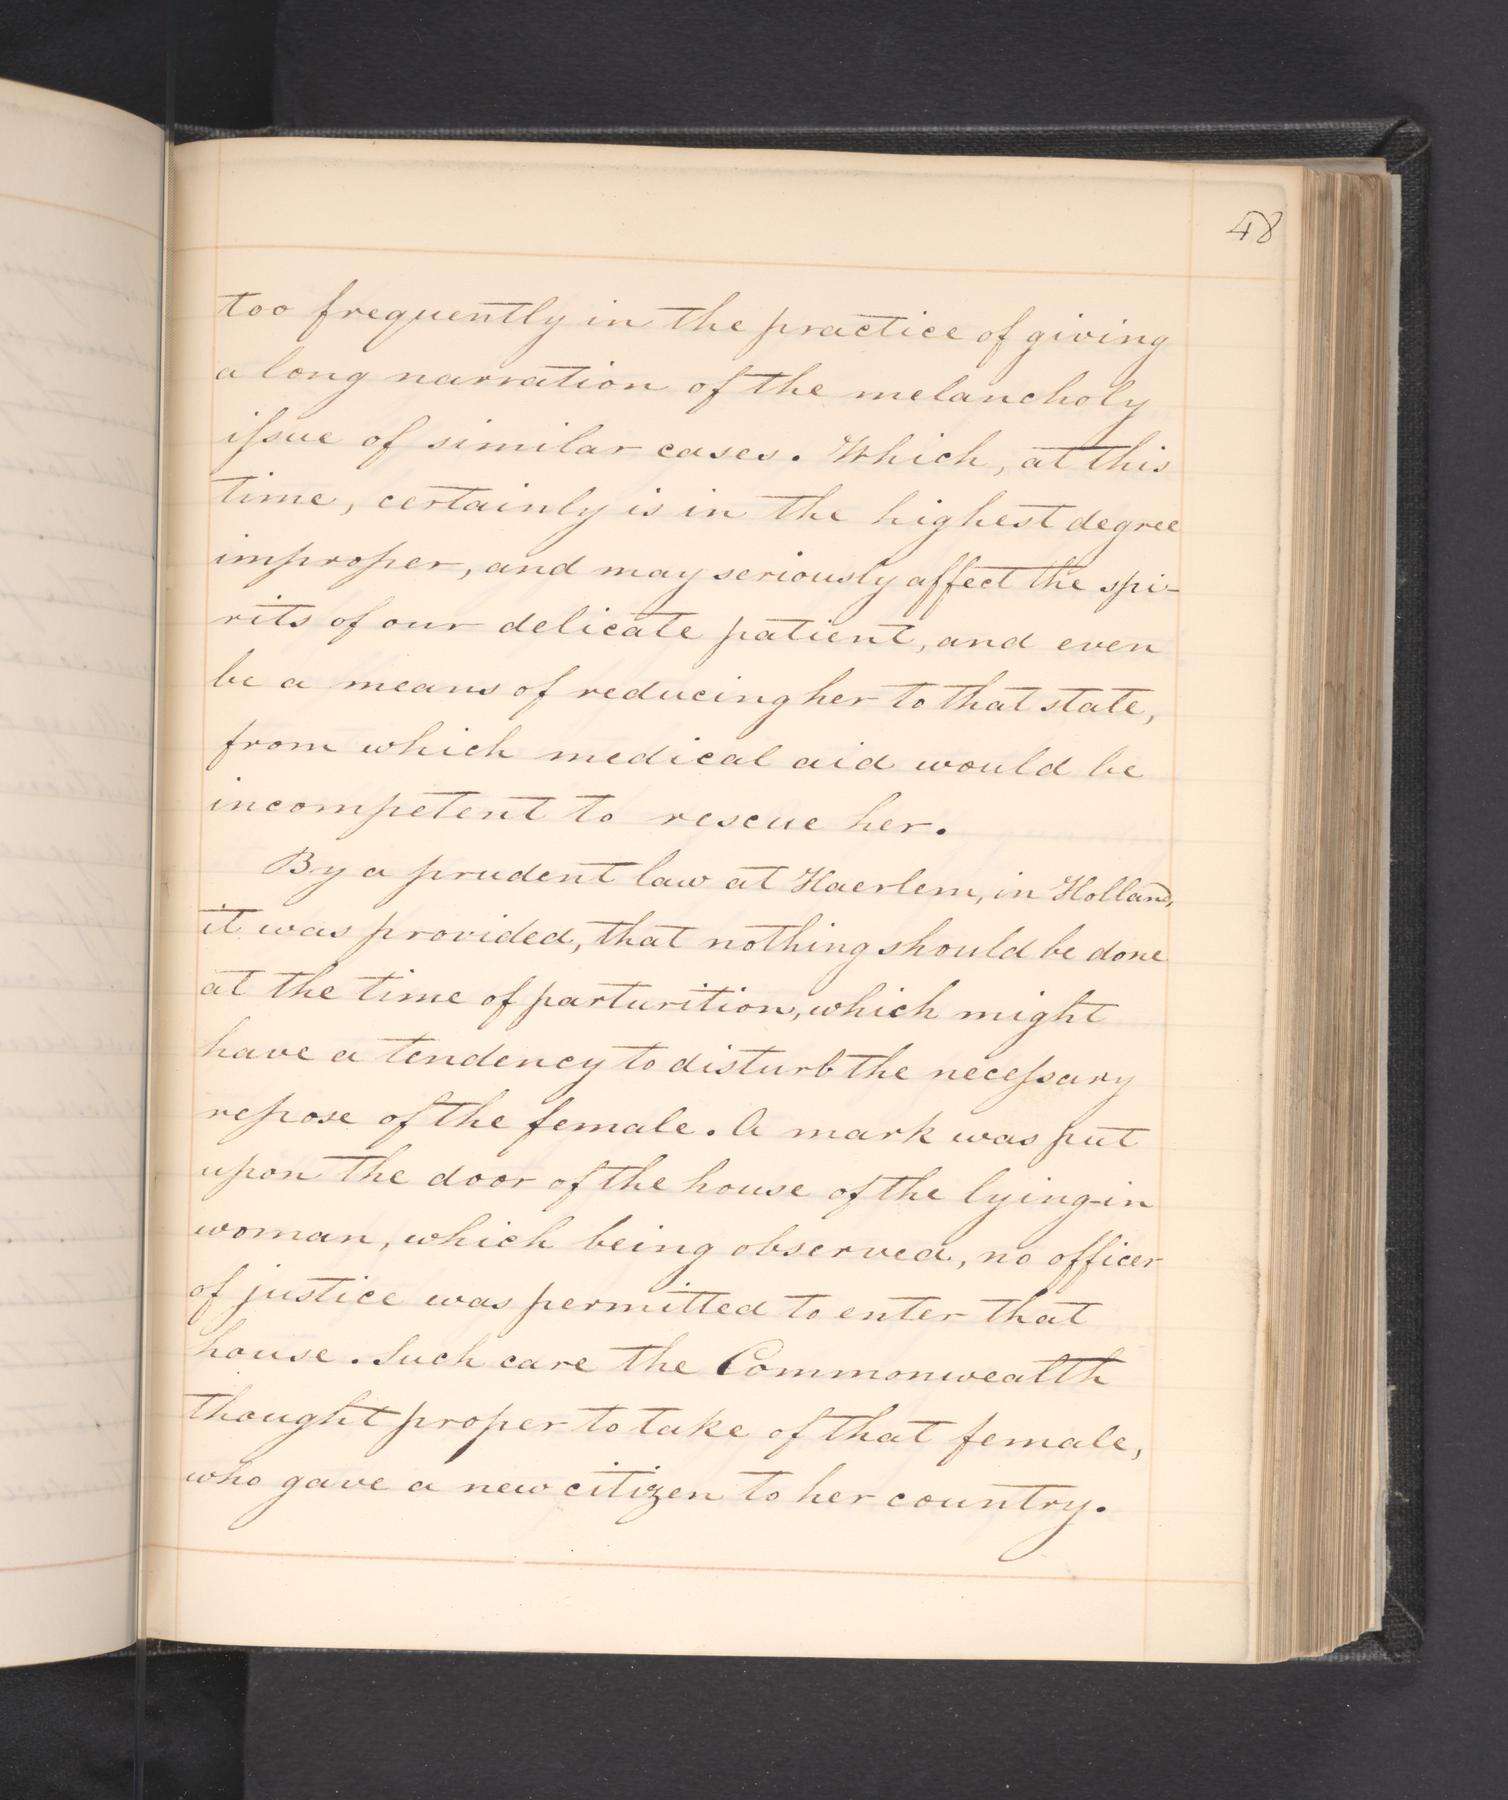 48
too frequently in the practice of giving
a long narration of the melancholy
iſsue of similar cases. Which, at this
time, certainly is in the highest degree
improper, and may seriously affect the spi-
rits of our delicate patient, and even
be a means of reducing her to that state,
from which medical aid would be
incompetent to rescue her.
By a prudent law at Haerlem, in Holland,
it was provided, that nothing should be done
at the time of parturition, which might
have a tendency to disturb the neceſsary
repose of the female. A mark was put
upon the door of the house of the lying-in
woman, which being observed, no officer
of justice was permitted to enter that
house. Such care the Commonwealth
thought proper to take of that female,
who gave a new citizen to her country.